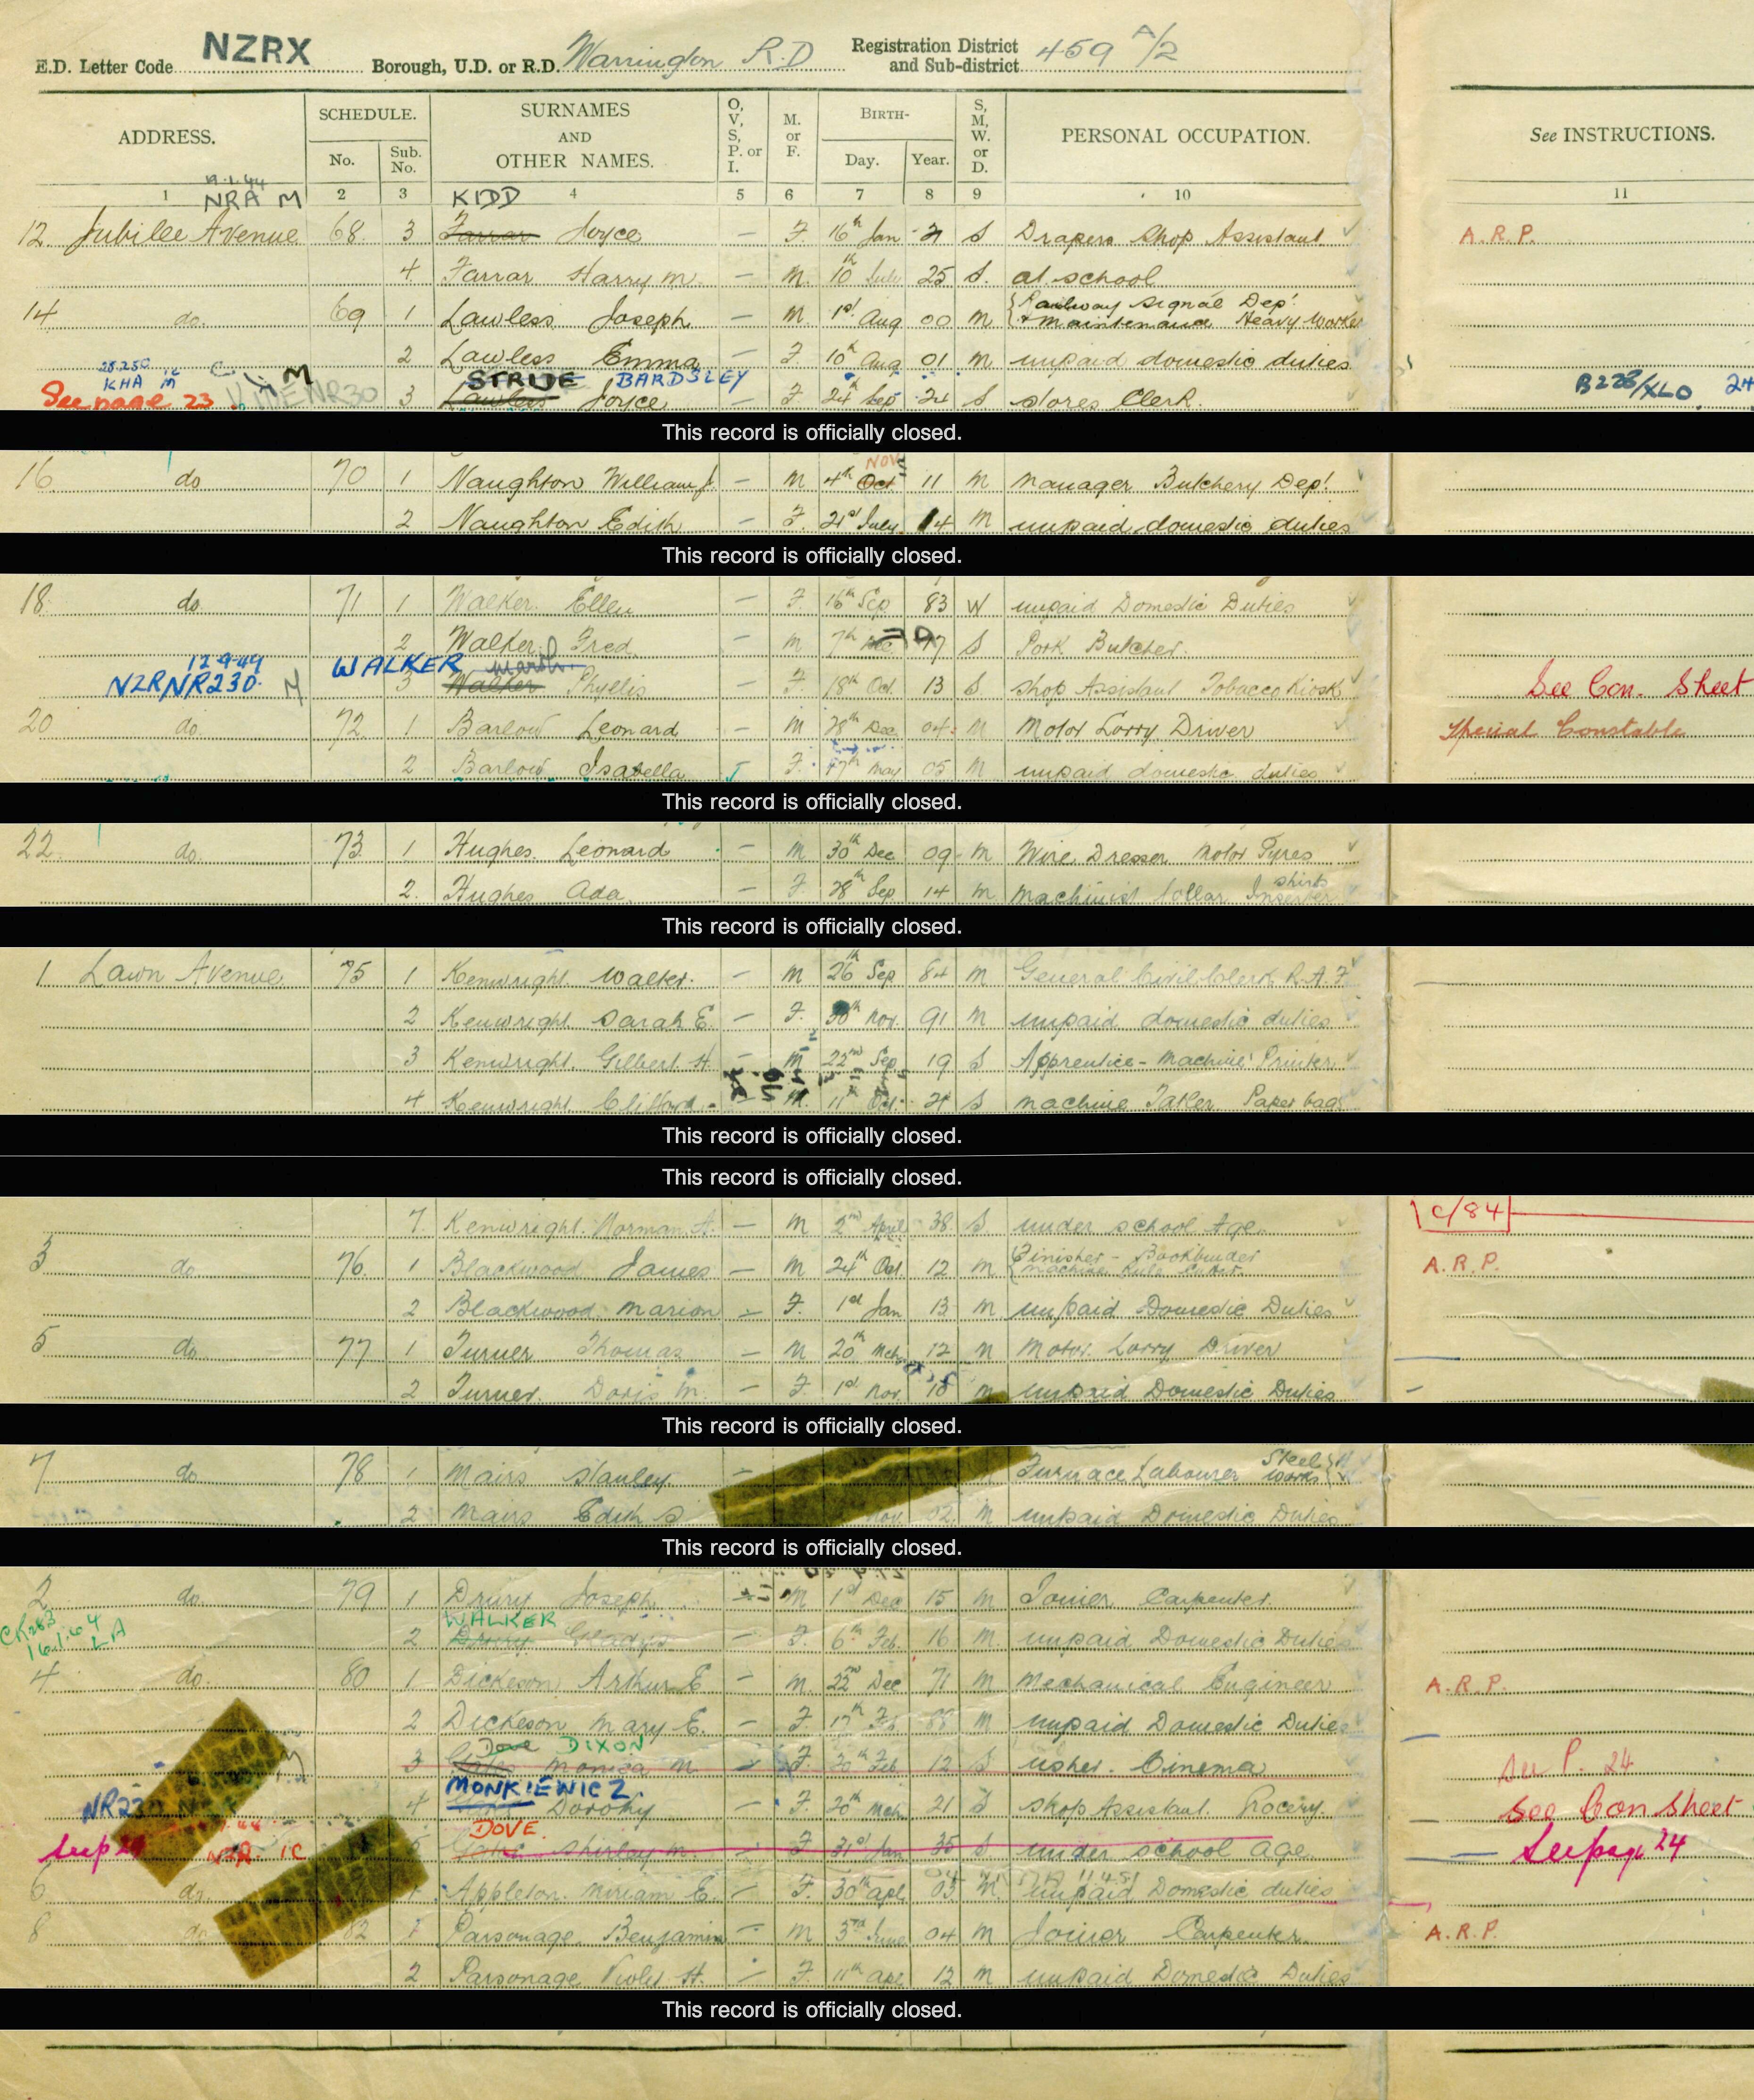 E.D. Letter Code NZRX Borough, U.D. or R.D. Warrington R.D Registration District and Sub-district 459 A/2
ADDRESS. SCHEDULE. No. Sub. No. SURNAMES AND OTHER NAMES. O, V, S, P. or I. M. or F. BIRTH- Day. Year. S, M, W. or D. PERSONAL OCCUPATION. See INSTRUCTIONS.
1 2 3 4 5 6 7 8 9 10 11
NRA M KIDD
12 Jubilee Avenue 68 3 Farrar Joyce — F 16th Jan 21 S Drapers Shop Assistant A.R.P.
4 Farrar Harry M. — M. 10th July 25 S. at school
14 do. 69 1 Lawless Joseph — M 1st Aug 00 M Railway Signal Dept
+ Maintenance Heavy Worker
2 Lawless Emma — F. 10th Aug 01 M unpaid domestic duties
KHA M STRUE BARDSLEY B228/XLO 24
See page 23 3 Lawless Joyce — F 24th Sep 24 S stores Clerk.
This record is officially closed.
Nov 5
16 do 70 1 Naughton William J. — M 4th Oct 11 M Manager Butchery Dept
2 Naughton Edith — F. 21st July 14 M unpaid domestic duties
This record is officially closed.
18 do 71 1 Walker Ellen — F 16th Sep 83 W unpaid Domestic Duties
2 Walker Fred — M 7th S Pork Butcher.
12.9.49 WALKER Marsh
NZRNR230 M 3 Walker Phyllis — F 18th Oct 13 S Shop Assistant Tobacco Kiosk See Con. Sheet
20 do. 72 1 Barlow Leonard — M 28th Dec 04 M Motor Lorry Driver Special Constable
2 Barlow Isabella F. 17th May 05 M unpaid domestic duties
This record is officially closed.
22 do. 73 1 Hughes Leonard — M 30th Dec 09 M Wire Dresser Motor Tyres
2. Hughes Ada. — F 28th Sep 14 M Machinist Collar Inserter shirts
This record is officially closed.
1 Lawn Avenue 75 1 Kenwright Walter. — M 26th Sep 84 M General Civil Clerk R.A.F
2 Kenwright Sarah E. — F. 30th Nov. 91 M unpaid domestic duties
3 Kenwright Gilbert H. — M 22nd Sep 19 S Apprentice - Machine Printer
4 Kenwright Clifford — M. 11th Oct 21 S Machine Paper bags
This record is officially closed.
This record is officially closed.
7. Kenwright Norman A. — M 2nd April 38 S. under school Age. C/84
3 do 76 1 Blackwood James — M 24th Oct 12 M Finisher - Bookbinder A.R.P.
Machine Rule Cutter
2 Blackwood Marion — F. 1st Jan 13 M unpaid Domestic Duties
5 do. 77 1 Turner Thomas — M 20th Mch 12 M Motor Lorry Driver
2 Turner. Doris M. — F. 1st Nov. 18 M unpaid Domestic Duties
This record is officially closed.
7 do 78 1 Mairs Stanley — Furnace Labourer Steel Works
2 Mairs Edith S Nov. 02 M unpaid Domestic Duties
This record is officially closed.
2 do. 79 1 Drury Joseph M 1st Dec 15 M Joiner Carpenter.
WALKER
2 Drury Gladys — F. 6th Feb. 16 M. unpaid Domestic Duties
4 do. 80 1 Dickeson Arthur E — M. 22nd Dec 71 M Mechanical Engineer A.R.P.
2 Dickeson Mary E. — F. 17th Feb 88 M unpaid Domestic Duties
Dove DIXON
3 Monica M — F. 20th Feb 12 S usher. Cinema see P. 24
MONKIEWICZ
NR23 4 Dorothy — F. 20th Mch 21 S Shop Assistant. Grocery. See Con Sheet
DOVE.
NZR IC 5 Shirley M. — F 31st Jan 35 S under school age See page 24
6 do. 1 Appleton Miriam E. — F. 30th Apl 03 M unpaid Domestic duties
8 do 82 1 Parsonage Benjamin — M 3rd June 04 M Joiner Carpenter. A.R.P.
2 Parsonage Violet H. — F. 11th Apl 12 M unpaid Domestic Duties
This record is officially closed.